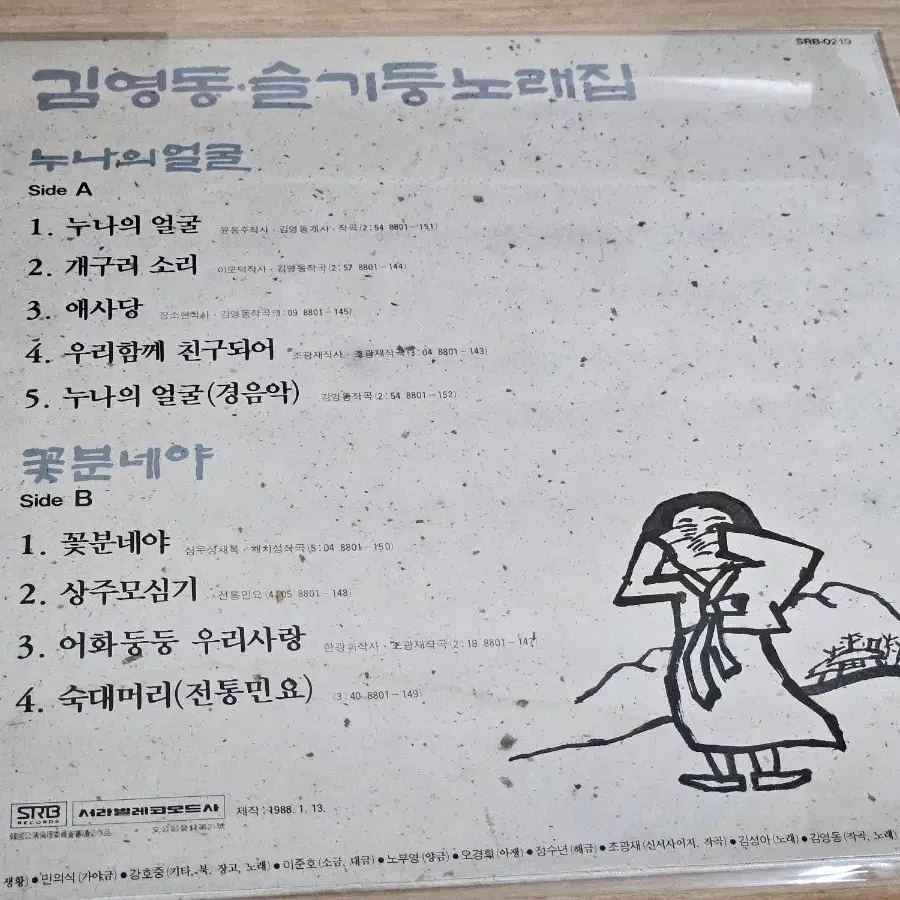 SRB-0219
김영동·슬기둥노래집
누나의얼굴
Side A
1. 누나의 얼굴 윤동주작사·김영동개사·작곡(2:54 8801-151)
2. 개구리 소리 이오덕작사·김영동작곡(2:57 8801-144)
3. 애사당 장소현작사·김영동작곡(3:09 8801-145)
4. 우리함께 친구되어 조광재작사·조광재작곡(3:04 8801-143)
5. 누나의 얼굴(경음악) 김영동작곡(2:54 8801-152)
꽃분네야
Side B
1. 꽃분네야 심우성채록·채치성작곡(5:04 8801-150)
2. 상주모심기 전통민요(4:05 8801-148)
3. 어화둥둥 우리사랑 작사·조광재작곡(2:18 8801-147
4. 숙대머리(전통민요) (3:40 8801-149)
SRB RECORDS 서라벌레코오드사 제작:1988. 1. 13.
생황)●민의식(가야금)●강호중(기타, 북, 장고, 노래)●이준호(소금, 대금)●노부영(양금)●오경희(아쟁)●정수년(해금)●조광재(신서사이저, 작곡)●김성아(노래)●김영동(작곡, 노래)